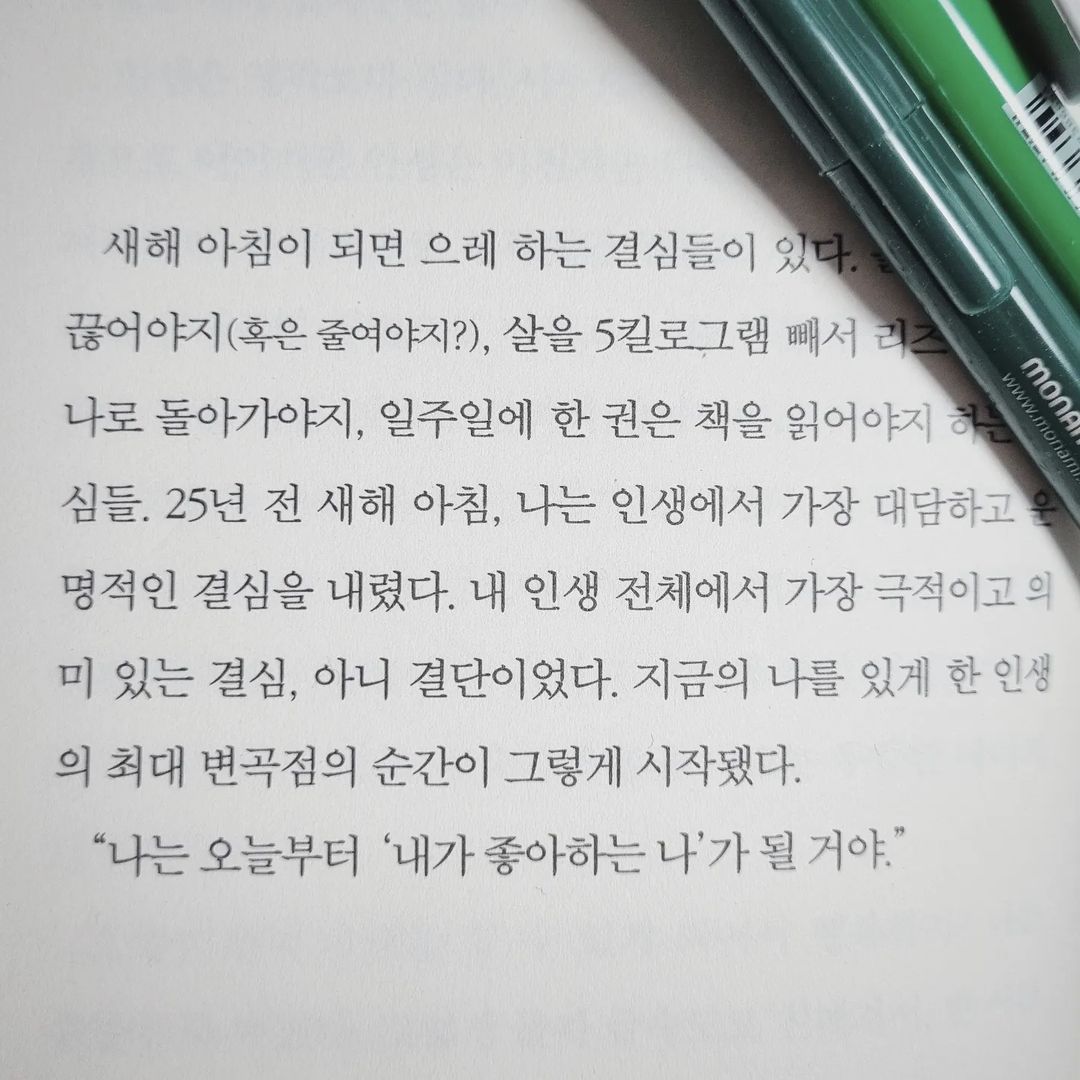 새해 아침이 되면 으레 하는 결심들이 있다.
끊어야지(혹은 줄여야지?), 살을 5킬로그램 빼서 리즈
나로 돌아가야지, 일주일에 한 권은 책을 읽어야지 하는
심들. 25년 전 새해 아침, 나는 인생에서 가장 대담하고 운
명적인 결심을 내렸다. 내 인생 전체에서 가장 극적이고 의
미 있는 결심, 아니 결단이었다. 지금의 나를 있게 한 인생
의 최대 변곡점의 순간이 그렇게 시작됐다.
“나는 오늘부터 ‘내가 좋아하는 나’가 될 거야.”